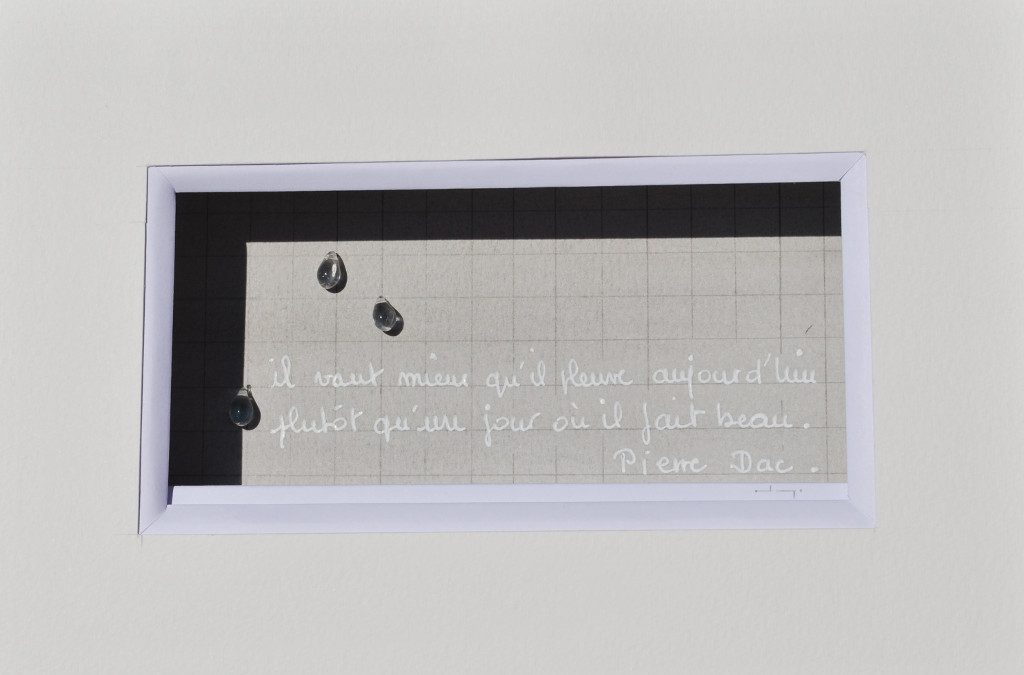 il vaut mieux qu'il pleuve aujourd'hui
plutôt qu'un jour où il fait beau.
Pierre Dac.